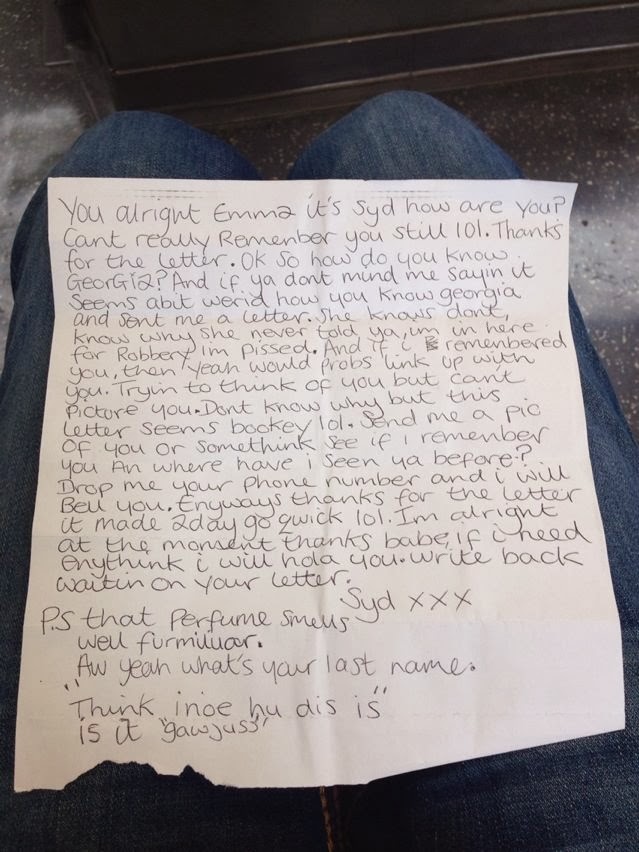 You alright Emma it's Syd how are you?
Cant really Remember you still lol. Thanks
for the Letter. Ok so how do you know
GeorGia? And if ya dont mind me sayin it
Seems abit werid how you know georgia
and sent me a letter. She knows dont,
know why she never told ya, im in here
for Robbery Im Pissed. And if i remembered
you, then yeah would Probs link up with
you. Tryin to think of you but can't
Picture you. Dont know why but this
Letter seems bookey lol. Send me a pic
Of you or somethink see if i remember
you An where have i seen ya before?
Drop me your Phone number and i will
Bell you. Enyways thanks for the letter
it made 2day go qwick lol. Im alright
at the moment thanks babe, if i need
Enythink i will hola you. write back
waitin on your letter.
Syd xxx
P.S that Perfume smells
well furmiluar.
Aw yeah what's your last name.
"Think inoe hu dis is"
is it "gawjuss"